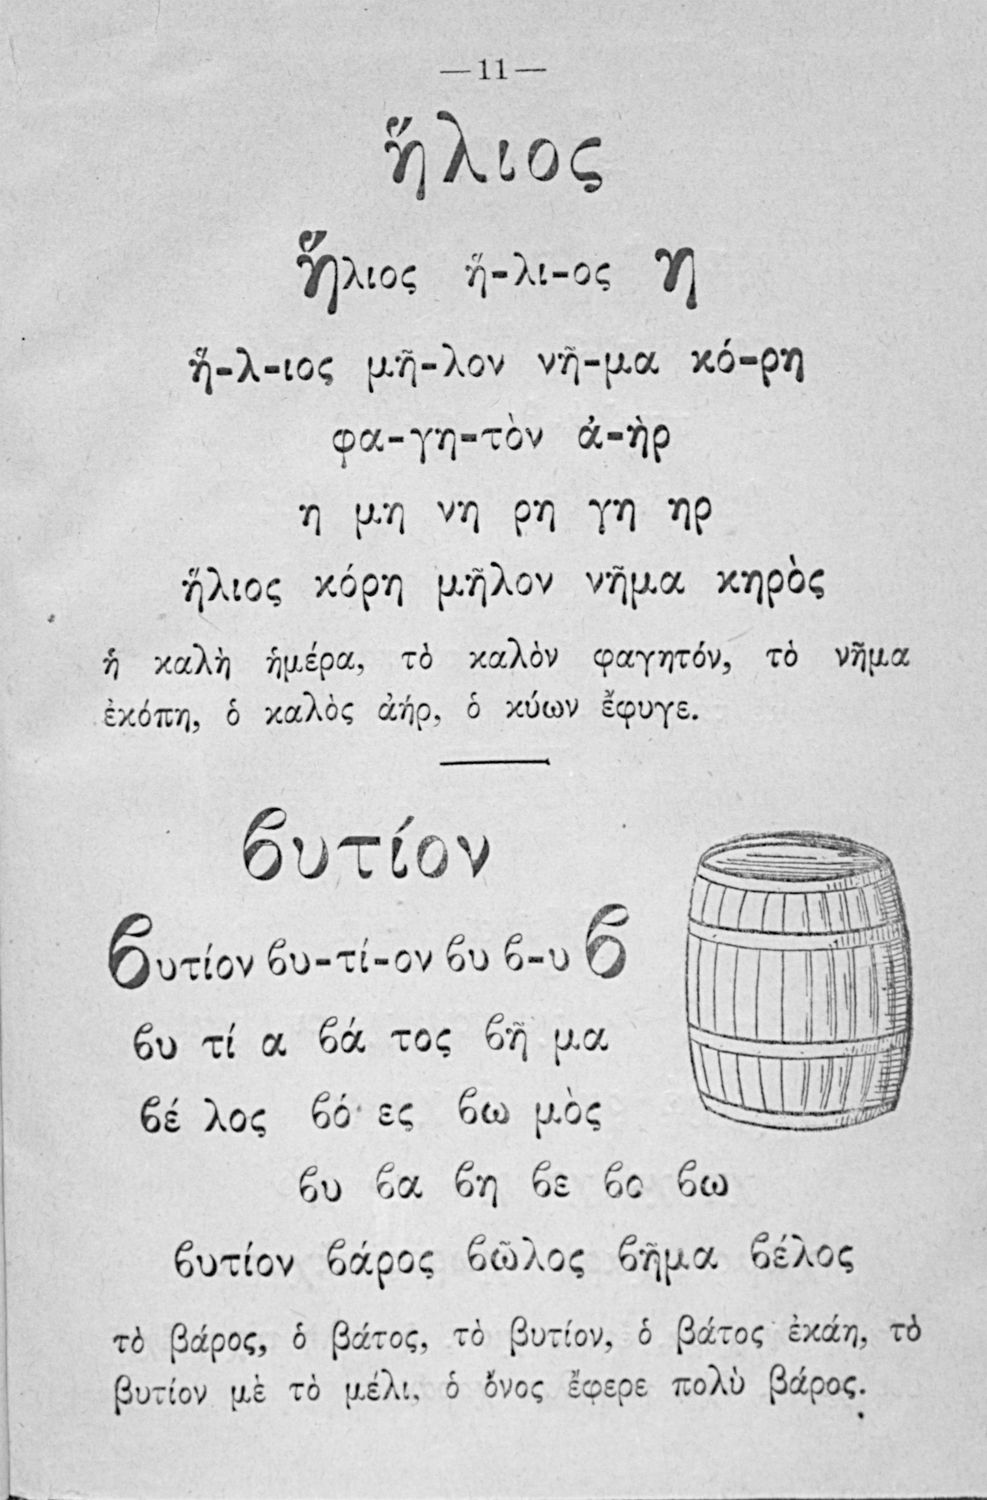 —11—
ἥλιος
ἥλιος ἥ-λι-ος η
ἥ-λ-ιος μῆ-λον νῆ-μα κό-ρη
φα-γη-τὸν ἀ-ὴρ
η μη νη ρη γη ηρ
ἥλιος κόρη μῆλον νῆμα κηρὸς
ἡ καλὴ ἡμέρα, τὸ καλὸν φαγητόν, τὸ νῆμα
ἐκόπη, ὁ καλὸς ἀήρ, ὁ κύων ἔφυγε.
ϐυτίον
ϐυτίον ϐυ-τί-ον ϐυ ϐ-υ ϐ
ϐυ τί α ϐά τος ϐῆ μα
ϐέ λος ϐό ες ϐω μὸς
ϐυ ϐα ϐη ϐε ϐο ϐω
ϐυτίον ϐάρος ϐῶλος ϐῆμα ϐέλος
τὸ βάρος, ὁ βάτος, τὸ βυτίον, ὁ βάτος ἐκάη, τὸ
βυτίον μὲ τὸ μέλι, ὁ ὄνος ἔφερε πολὺ βάρος.